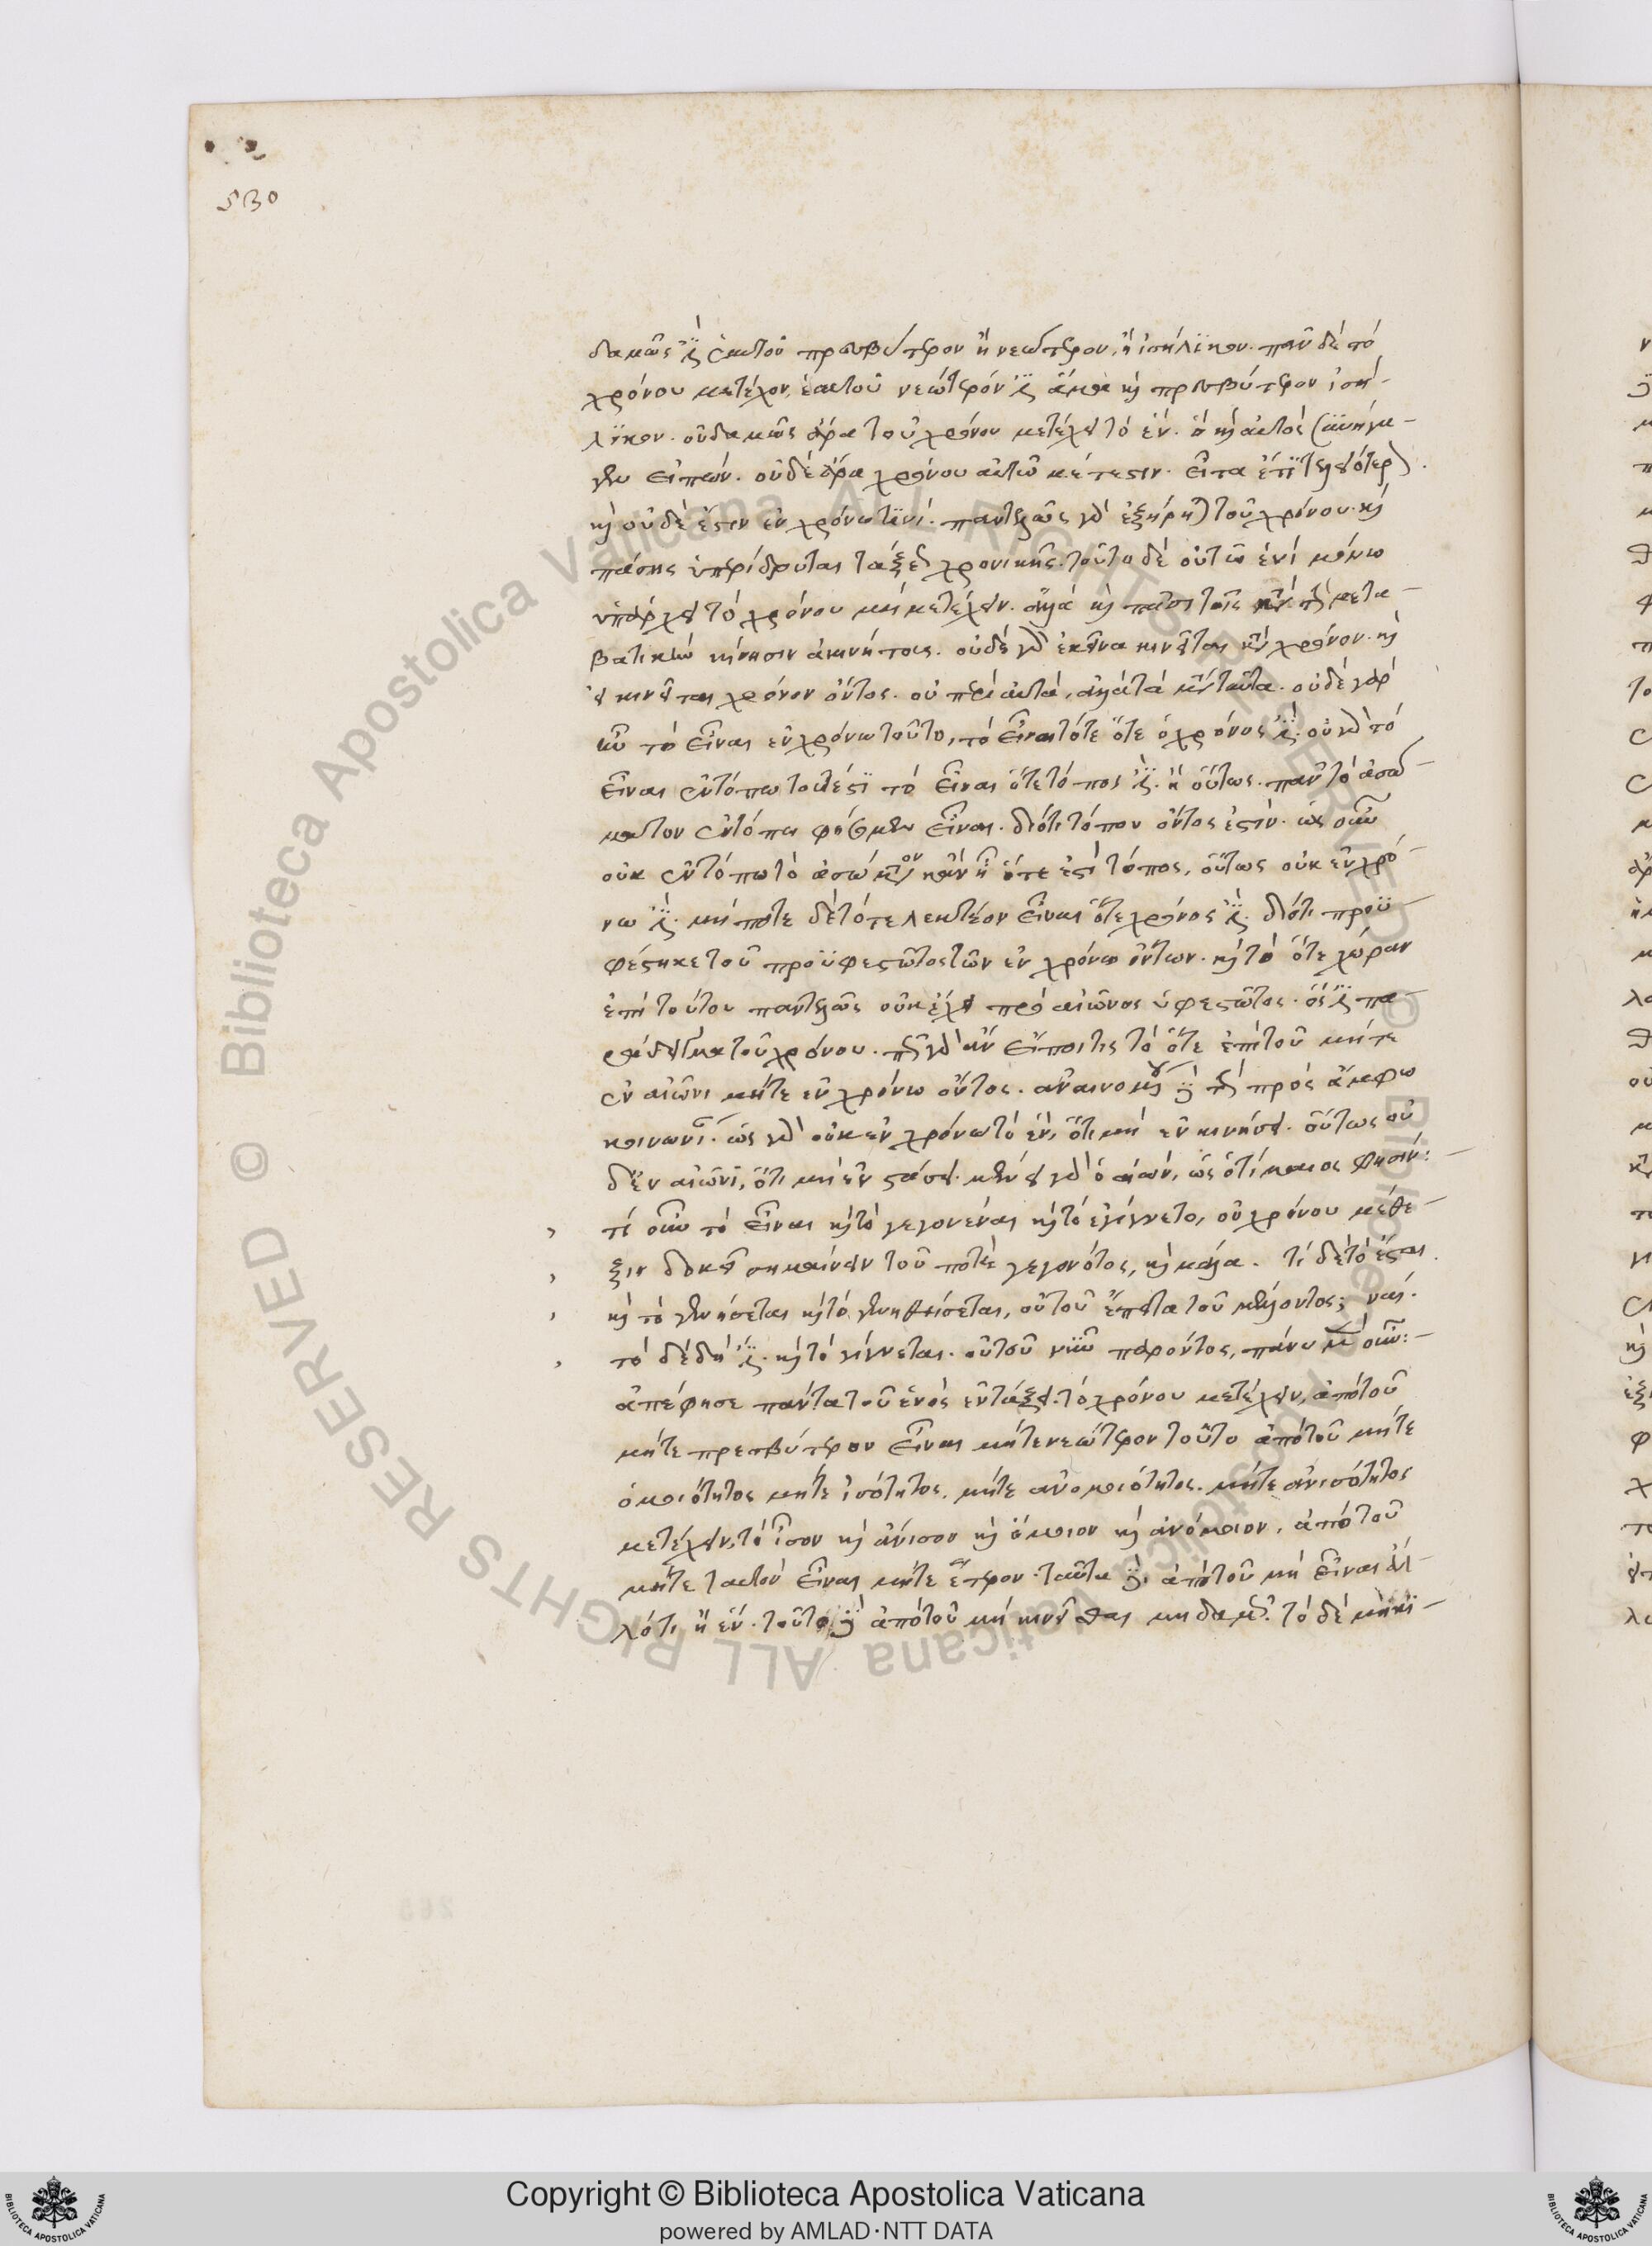 530
δαμῶς ἐστὶ ἑαυτοῦ πρεσβύτερον ἢ νεώτερον, ἢ ἰσήλικον. πᾶν δὲ τὸ
χρόνου μετέχον, ἑαυτοῦ νεώτερόν ἐστι ἅμα καὶ πρεσβύτερον ἰση-
λικον. οὐδαμῶς ἄρα τοῦ χρόνου μετέχει τὸ ἕν. ὃ καὶ αὐτὸς
εἰπών. οὐδὲ ἄρα χρόνου αὐτῶ μέτεστιν. εἶτα ἔτι
καὶ οὐδὲ ἔστιν ἐν χρόνω τινί. παντελῶς γὰρ ἐξήρηται τοῦ χρόνου. καὶ
πάσης ὑπερίδρυται τάξεως χρονικῆς. τοῦτο δὲ οὔτω ἑνὶ μόνω
ὑπάρχει τὸ χρόνου μὴ μετέχειν. ἀλλὰ καὶ πᾶσι τοῖς κατὰ τὴν μετα-
βατικὴν κίνησιν ἀκινήτοις. οὐδὲ γὰρ ἐκεῖνα κινεῖται κατὰ χρόνον. καὶ
εἰ κινεῖται χρόνον ὄντος. οὐ περὶ αὐτά, ἀλλὰ τὰ μετὰ ταῦτα. οὐδὲ γὰρ
ἦν τὸ εἶναι ἐν χρόνω τοῦτο, τὸ εἶναι τότε ὅτε ὁ χρόνος ἐστί. οὐ γὰρ τὸ
εἶναι ἐν τόπω τοῦτ' ἔστι τὸ εἶναι ὅτε τόπος ἐστί. ἢ οὕτως. πᾶν τὸ ἀσώ-
ματον ἐν τόπω φήσομεν εἶναι. διότι τόπου ὄντος ἐστίν. ὡς οὖν
οὐκ ἐν τόπω τὸ ἀσώματον κἂν ἦ ὅτε ἐστὶ τόπος, οὕτως οὐκ ἐν χρό-
νω ἐστί. μήποτε δὲ τότε λεκτέον εἶναι ὅτε χρόνος ἐστί. διότι προϋ-
φέστηκε τοῦ προϋφεστῶτος τῶν ἐν χρόνω ὄντων. καὶ τὸ ὅτε χώραν
ἐπὶ τούτου παντελῶς οὐκ ἔχει πρὸ αἰῶνος ὑφεστῶτος. ὅς ἐστι πα-
ράδειγμα τοῦ χρόνου. πῶς γὰρ ἂν εἴποι τις τὸ ὅτε ἐπὶ τοῦ μήτε
ἐν αἰῶνι μήτε ἐν χρόνω ὄντος. ἀναινομένου καὶ τὴν πρὸς ἄμφω
κοινωνίαν. ὡς γὰρ οὐκ ἐν χρόνω τὸ ἕν, ὅτι μὴ ἐν κινήσει. οὕτως οὐ
δὲ ἐν αἰῶνι, ὅτι μὴ ἐν στάσει. μένει γὰρ ὁ αἰών, ὡς ὁ τίμαιος φησίν:
τί οὖν τὸ εἶναι καὶ τὸ γεγονέναι καὶ τὸ ἐγίγνετο, οὐ χρόνου μέθε-
ξιν δοκεῖ σημαίνειν τοῦ ποτὲ γεγονότος, καὶ μάλα. τί δὲ τὸ ἔσται
καὶ τὸ γενήσεται καὶ τὸ γενηθήσεται, οὐ τοῦ ἔπειτα τοῦ μέλλοντος; ναί.
τὸ δὲ δὴ ἐστί. καὶ τὸ γίγνεται. οὐ τοῦ νῦν παρόντος, πάνυ μὲν οὖν:
ἀπέφησε πάντα τοῦ ἑνὸς ἐν τάξει. τὸ χρόνου μετέχειν, ἀπὸ τοῦ
μήτε πρεσβύτερον εἶναι μήτε νεώτερον τοῦτο ἀπὸ τοῦ μήτε
ὁμοιότητος μήτε ἰσότητος. μήτε ἀνομοιότητος. μήτε ἀνισότητος
μετέχειν, τὸ ἴσον καὶ ἄνισον καὶ ὅμοιον καὶ ἀνόμοιον, ἀπὸ τοῦ
μήτε ταυτὸν εἶναι μήτε ἕτερον. ταῦτα καὶ ἀπὸ τοῦ μὴ εἶναι ἀλ-
λό τι ἢ ἕν. τοῦτο καὶ ἀπὸ τοῦ μὴ κινεῖσθαι μηδαμῶς. τὸ δὲ μὴ κι-
Copyright © Biblioteca Apostolica Vaticana
powered by AMLAD·NTT DATA